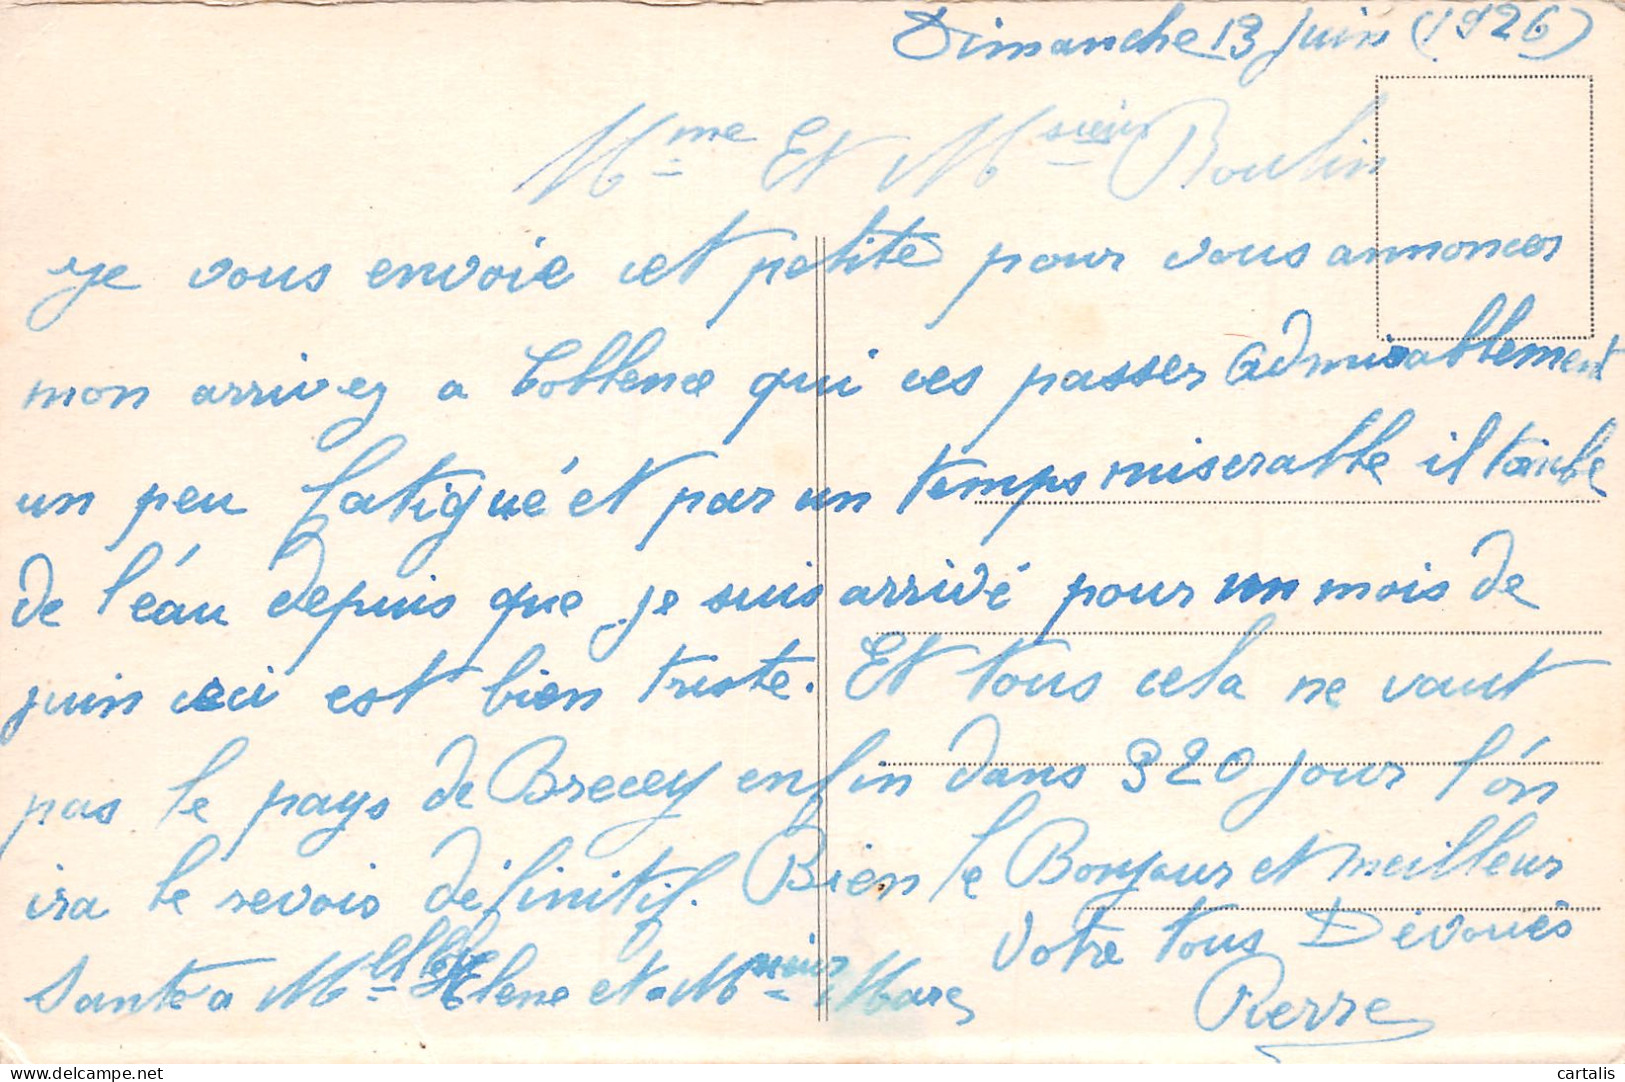 Dimanche 13 juin (1926)
Mme Et Msieur Boulin
je vous envoie cet petite pour vous annoncer
mon arrivez a Coblence qui ces passer admirablement
un peu fatigué et par un temps miserable il tombe
de l'éau depuis que je suis arrivé pour un mois de
juin ceci est bien triste. Et tous cela ne vaut
pas le pays de Brecey enfin dans 320 jour l'on
ira le revois définitif. Bien le Bonjour et meilleur
Santé a Mlle Hélene et a Msieur Marc
Votre tous Dévoués
Pierre
delcampe.net
cartalis